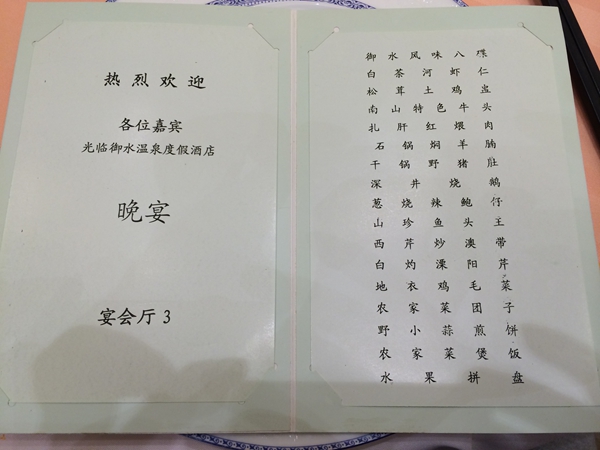 热烈欢迎
各位嘉宾
光临御水温泉度假酒店
晚宴
宴会厅 3
御水风味八碟
白茶河虾仁
松茸土鸡盅
南山特色牛头
扎肝红煨肉
石锅焖羊腩
干锅野猪肚
深井烧鹅
葱烧辣鲍仔
山珍鱼头王
西芹炒澳带
白灼溧阳芹
地衣鸡毛菜
农家菜团子
野小蒜煎饼
农家菜煲饭
水果拼盘